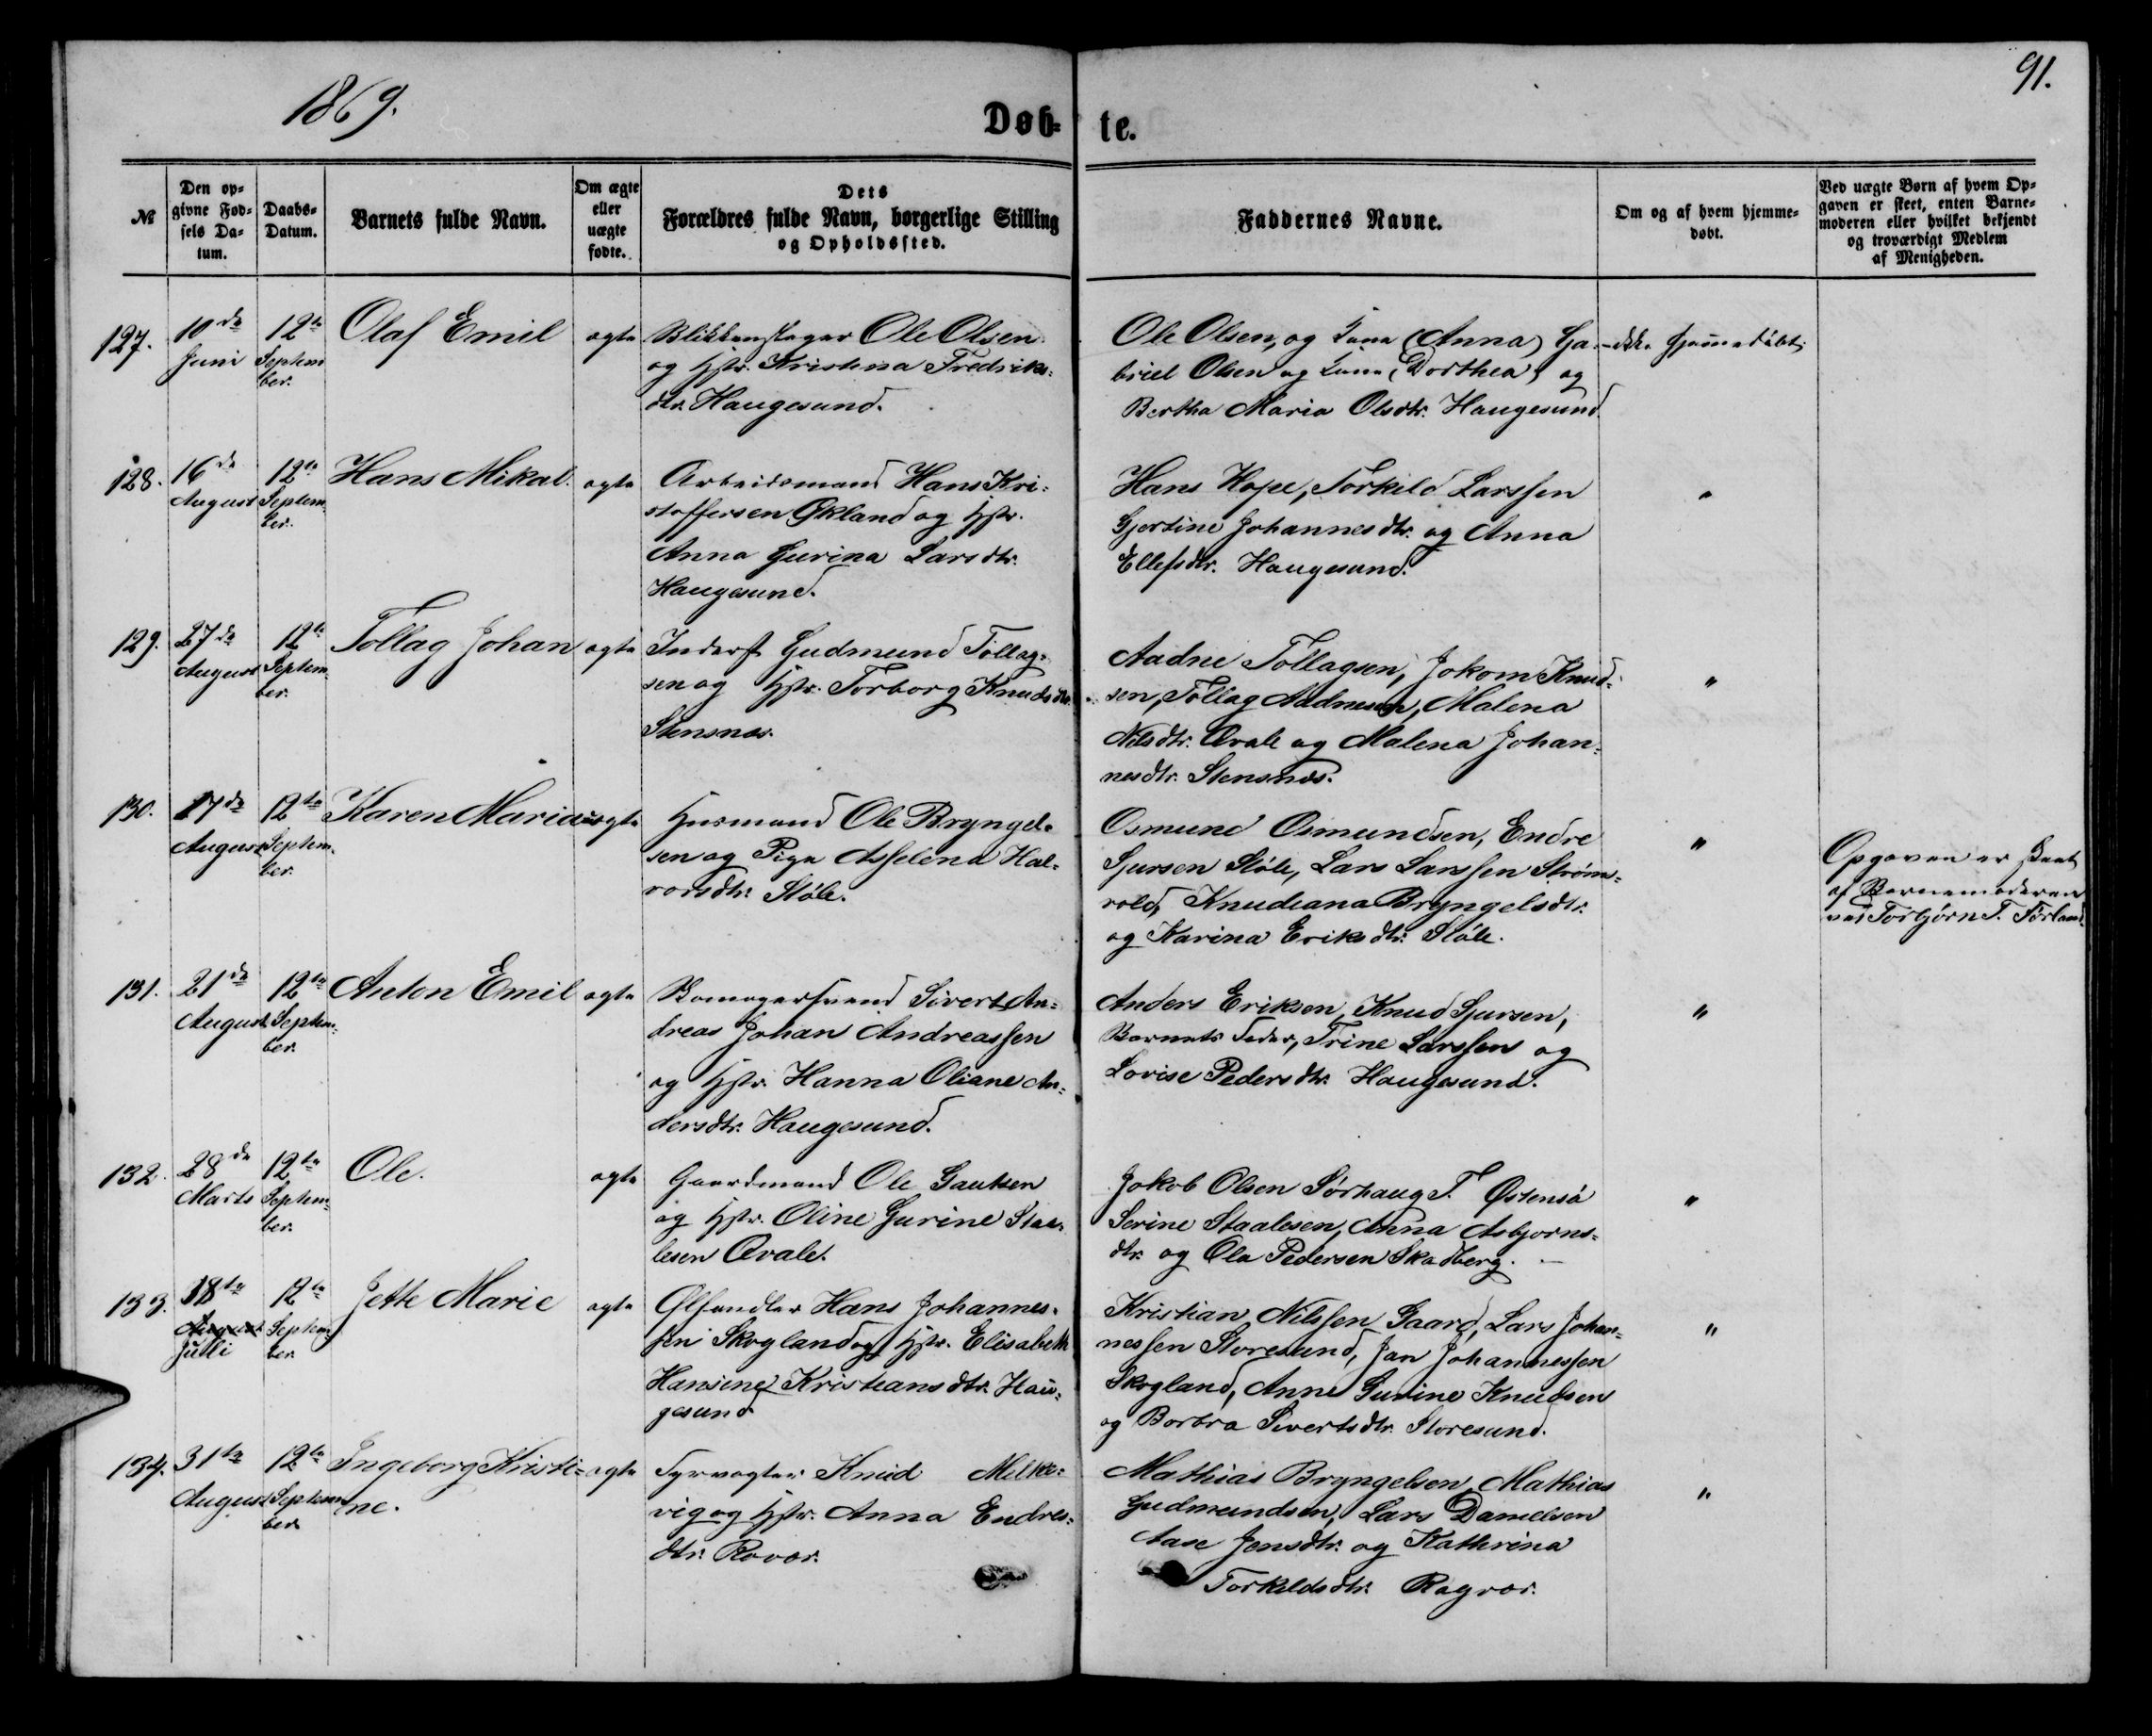 1869.
91.
Døb-
te.
№
Den op-
givne Fød-
sels Da-
tum.
Daabs-
Datum.
Barnets fulde Navn.
Om ægte
eller
uægte
fødte.
Dets
Forældres fulde Navn, borgerlige Stilling
og Opholdssted.
Faddernes Navne.
Om og af hvem hjemme-
døbt.
Ved uægte Børn af hvem Op-
gaven er skeet, enten Barne-
moderen eller hvilket bekjendt
og troværdigt Medlem
af Menigheden.
127.
10de
Juni
12te
Septem
ber.
Olaf Emil
ægte
Blikkenslager Ole Olsen
og Hstr. Kristina Fredriks-
dtr. Haugesund.
Ole Olsen, og Kone (Anna) Ga-
briel Olsen og Kone (Dorthea) og
Bertha Maria Olsdtr. Haugesund
ikke hjemmedøbt
128.
16de
August
12te
Septem
ber.
Hans Mikal.
ægte
Arbeidsmand Hans Kri-
stoffersen Økland og Hstr.
Anna Gurina Larsdtr.
Haugesund.
Hans Hope, Torkild Larssen
Gjertine Johannesdtr. og Anna
Ellefsdtr. Haugesund.
"
129.
27de
August
12te
Septem
ber.
Tollag Johan
ægte
Inderst Gudmund Tollag-
sen og Hstr. Torborg Knudsdtr.
Stensnæs.
Aadne Tollagsen, Jokom Knud-
sen, Tollag Aadnesen, Malena
Nilsdtr. Qvale og Malena Johan-
nesdtr. Stensnæs.
"
130.
17de
August
12te
Septem
ber.
Karen Maria
uægte
Husmand Ole Bryngel-
sen og Pige Asselena Hal-
vorsdtr. Støle.
Osmund Osmundsen, Endre
Sjursen Støle, Lars Larssen Strøm-
vold, Knudeana Bryngelsdtr.
og Karina Eriksdtr. Støle.
"
Opgaven er skeet
af Barnemoderen
ved Torbjørn T. Førland
131.
21de
August
12te
Septem-
ber.
Anton Emil
ægte
Skomagersvend Sivert An-
dreas Johan Andreassen
og Hstr. Hanna Oliane An-
dersdtr. Haugesund.
Anders Eriksen, Knud Sjursen,
Barnets Fader, Trine Larssen og
Lovise Pedersdtr. Haugesund.
"
132.
28de
Marts
12te
Septem-
ber.
Ole.
ægte
Gaardmand Ole Gautsen
og Hstr. Oline Gurine Staa-
lesen Qvale.
Jakob Olsen Sørhaug T. Østensø
Serine Staalesen, Anna Asbjørns-
dtr. og Ola Pedersen Skadberg.
"
133.
18te
August
Juli
12te
Septem
ber.
Jette Marie
ægte
Ølhandler Hans Johannes-
sen Skogland og Hstr. Elisabeth
Hansine Kristiansdtr. Hau-
gesund
Kristian Nilssen Gaard, Lars Johan-
nessen Storesund, Jan Johannessen
Skogland, Anne Gurine Knudsen
og Borbra Sivertsdtr. Storesund.
"
134.
31te
August
12te
Septem
ber.
Ingeborg Kristi-
ne.
ægte
Fyrvogter Knud Melke-
vig og Hstr. Anna Endres-
dtr. Røvær.
Mathias Bryngelsen, Mathias
Gudmundsen, Lars Danielsen
Aase Jensdtr. og Kathrina
Torkildsdtr. Røgvær.
"